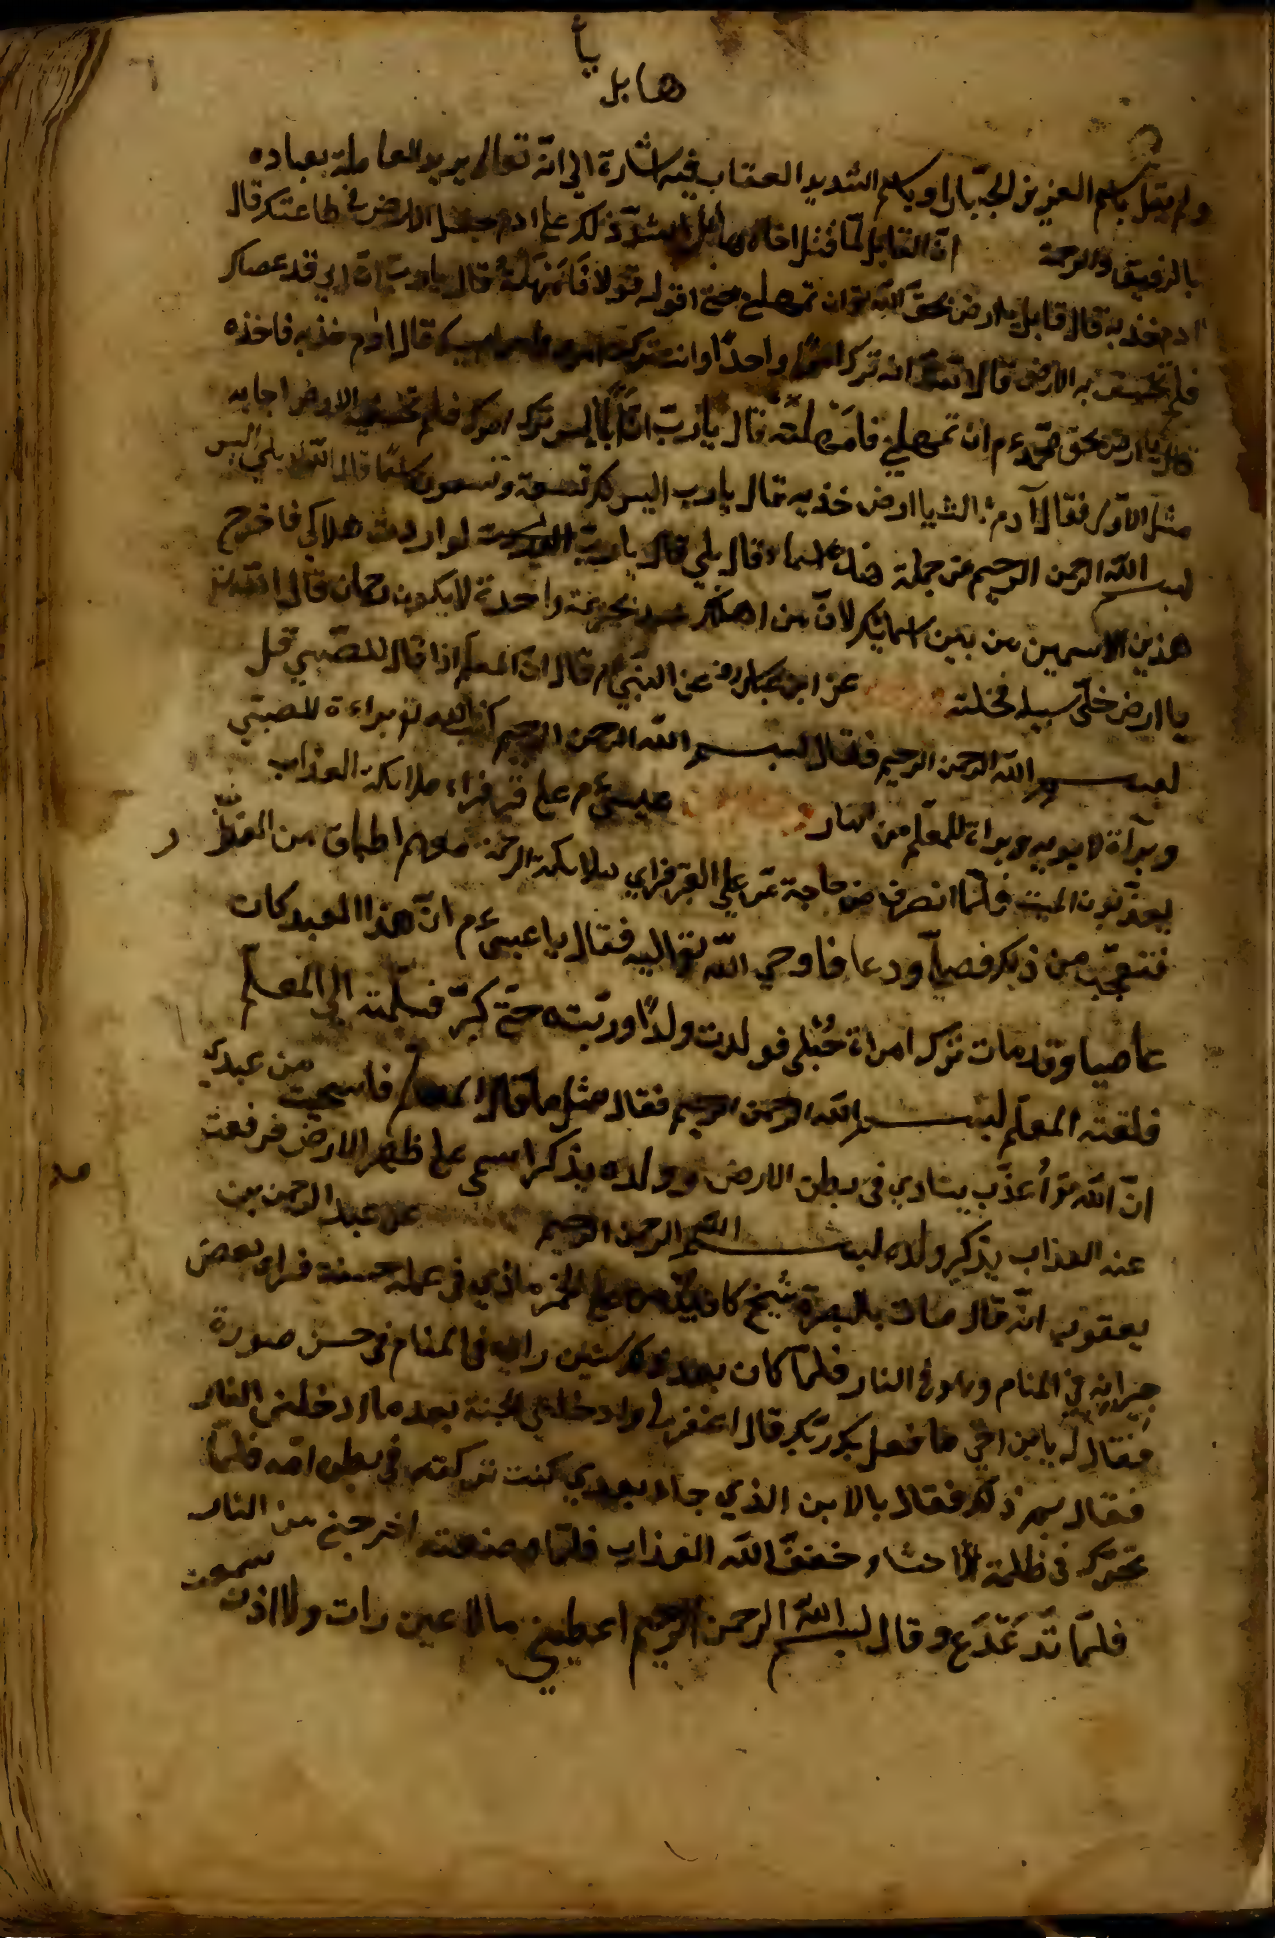 يا
هابل
ولم يقل باسم العزيز الجبار او باسم الشديد العقاب فيه اشارة الى انّه تعالى يريد المعاملة بعباده
بالرفيق والرحمة انّ القابل لمّا قتل اخاه هابل اشتدّ ذلك على ادم جعل الارض في طاعتك قال
ادم خذيه قال قابل يا ارض بحقّ اللّه تو ان تمهلي حتى اقول قولا فامهلته قال يا ربّ انّ ابي قد عصاك
فلم تخسف به الارض قال اللّه تو انه ترك امرًا واحدًا وانت تركت قال ادم خذيه فاخذه
قال يا ارض بحق محمّد عم ان تمهلي فامهلته قال يا ربّ انّ ابليس ترك امرك فلم تخسف الارض اجابه
مثل الاوّل فقال آدم ثالثا يا ارض خذيه فقال يا رب اليس لك تسعة وتسعون اسمًا قال اللّه بلى اليس
بسم اللّه الرحمن الرحيم من جملة هذه الاسماء قال بلى قال يا ربّ لو اردت هلاكي فاخرج
هذين الاسمين من بين اسمائك لانّ من اهلك بجريمة واحدة لا يكون رحمان قال اللّه تو
يا ارض خلّي سبيله فخلته عن ابن عباس رض عن النبيّ م قال انّ المعلم اذا قال للصّبي قل
بسم اللّه الرحمن الرحيم فقال بسم اللّه الرحمن الرحيم كتب اللّه تو براءة للصبيّ
وبرأة لابويه وبراة للمعلّم من النار عيسى عم على قبر فراء ملائكة العذاب
يعذّبون الميت فلمّا انصرف من حاجة مرّ على القبر فراى ملائكة الرحمة معهم اطباق من
فتعجّب من ذلك فصلّ ودعا فاوحى اللّه تو اليه فقال يا عيسى عم انّ هذا العبد كان
عاصيا وقد مات ترك امراة حُبلى فولدت ولدًا وربّته حتّى كبرّ فسلّمته الى المعلّم
فلقنه المعلّم بسم اللّه الرحمن الرحيم فقال مثل ما قال المعلم فاسحيت من عبدى
انّ اللّه تو أعذّب ينادي في بطن الارض وولده يذكر اسمى على ظهر الارض فرفعت
عنه العذاب بذكر ولده بسم اللّه الرحمن الرحيم عن عبد الرحمن بن
يعقوب انّه قال مات بالبصرة شيخ كان على الخمر ماذي في عمله حسنة فراى بعض
جيرانه في المنام وهو في النار فلمّا كان بعد سنين راه في المنام في حسن صورة
فقال له يا بن اخي ما فعل بك ربّك قال اغفر لي وادخلني الجنة بعد ما ادخلني النار
فقال بم ذلك فقال بالابن الذي جاء بعدي كنت تركته في بطن امّه فلمّا
تحرّك في ظلمة الاحشاء خففّ اللّه العذاب فلمّا وضعته اخرجني من النار
فلمّا تدعّدع وقال بسم اللّه الرحمن الرحيم اعطيني ما لا عين رات ولا اذن سمعت